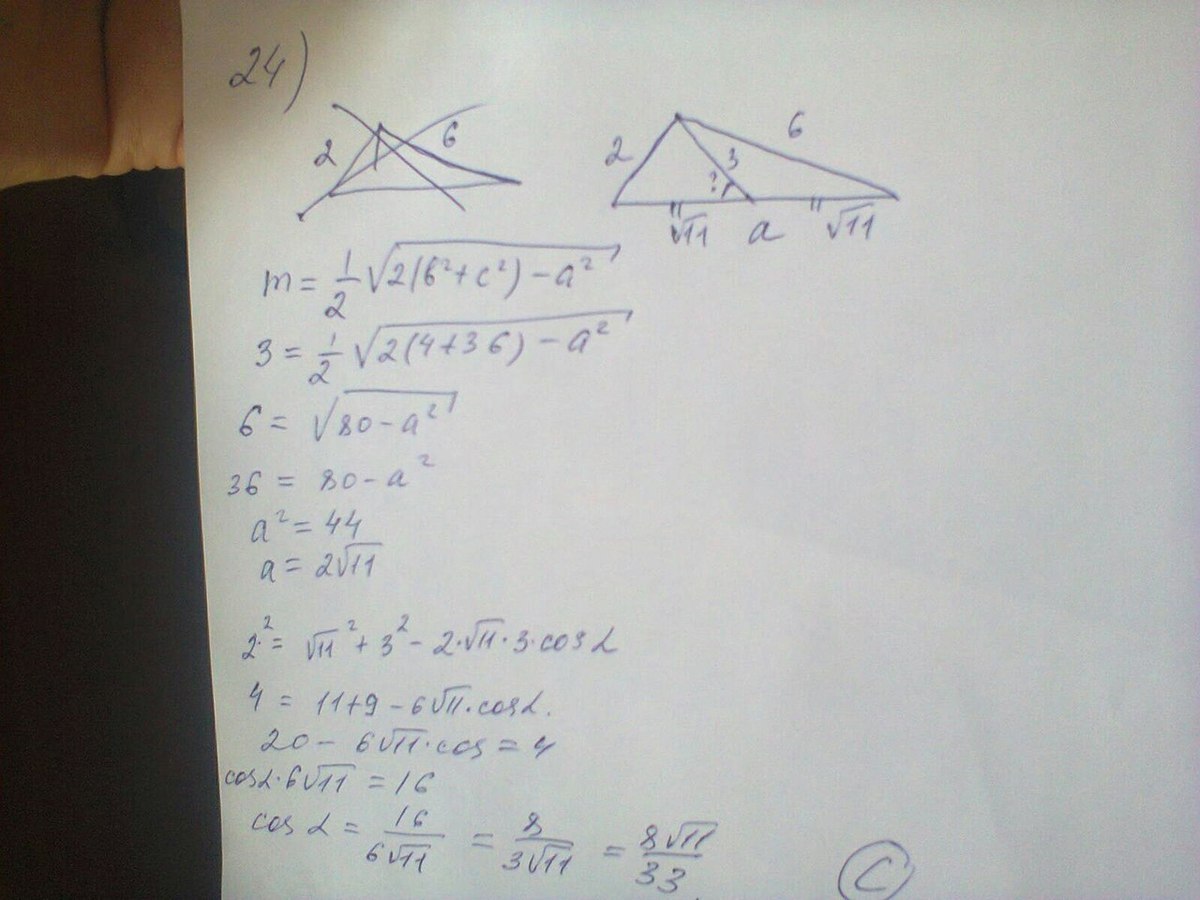 24)
2 6
2 3 6
?
√11 a √11
m = 1/2 √(2(b²+c²) − a²)
3 = 1/2 √(2(4+36) − a²)
6 = √(80 − a²)
36 = 80 − a²
a² = 44
a = 2√11
2² = √11² + 3² − 2·√11·3·cos α
4 = 11+9 − 6√11·cos α.
20 − 6√11·cos = 4
cos α·6√11 = 16
cos α = 16/(6√11) = 8/(3√11) = 8√11/33
C